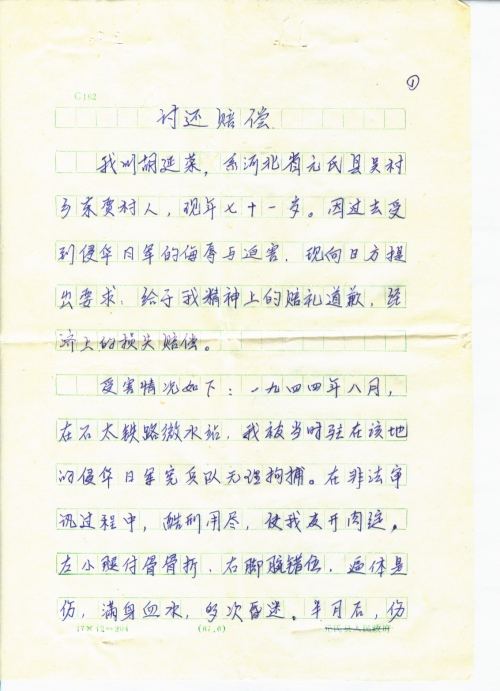 ①
G162
讨还赔偿
我叫胡延菜，系河北省元氏县吴村
乡东贾村人，现年七十一岁。因过去受
到侵华日军的侮辱与迫害，现向日方提
出要求：给予我精神上的赔礼道歉，经
济上的损失赔偿。
受害情况如下：一九四四年八月，
在石太铁路微水站，我被当时驻在该地
的侵华日军宪兵队无理拘捕。在非法审
讯过程中，酷刑用尽，使我皮开肉绽。
左小腿付骨骨折，右脚脱错位，遍体是
伤，满身血水，多次昏迷。半月后，伤
17×12=204
(87.6)
元氏县人民政府